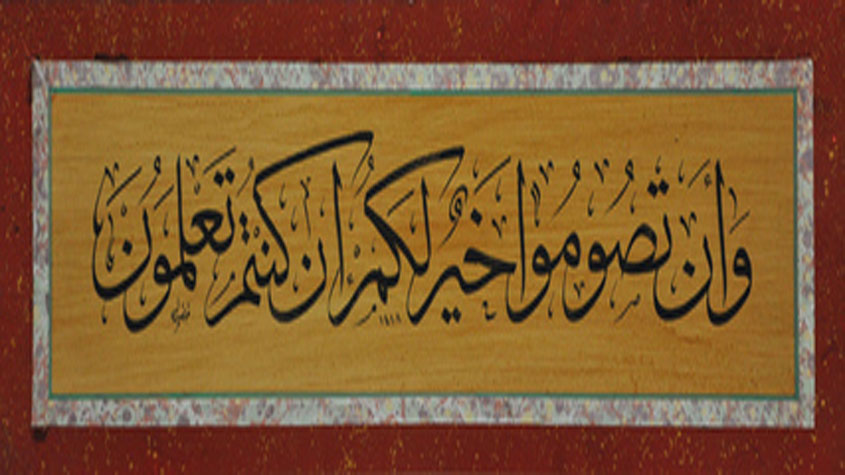 وَأَن تَصُومُوا خَيْرٌ لَكُمْ اِنْ كُنْتُمْ تَعْلَمُونَ